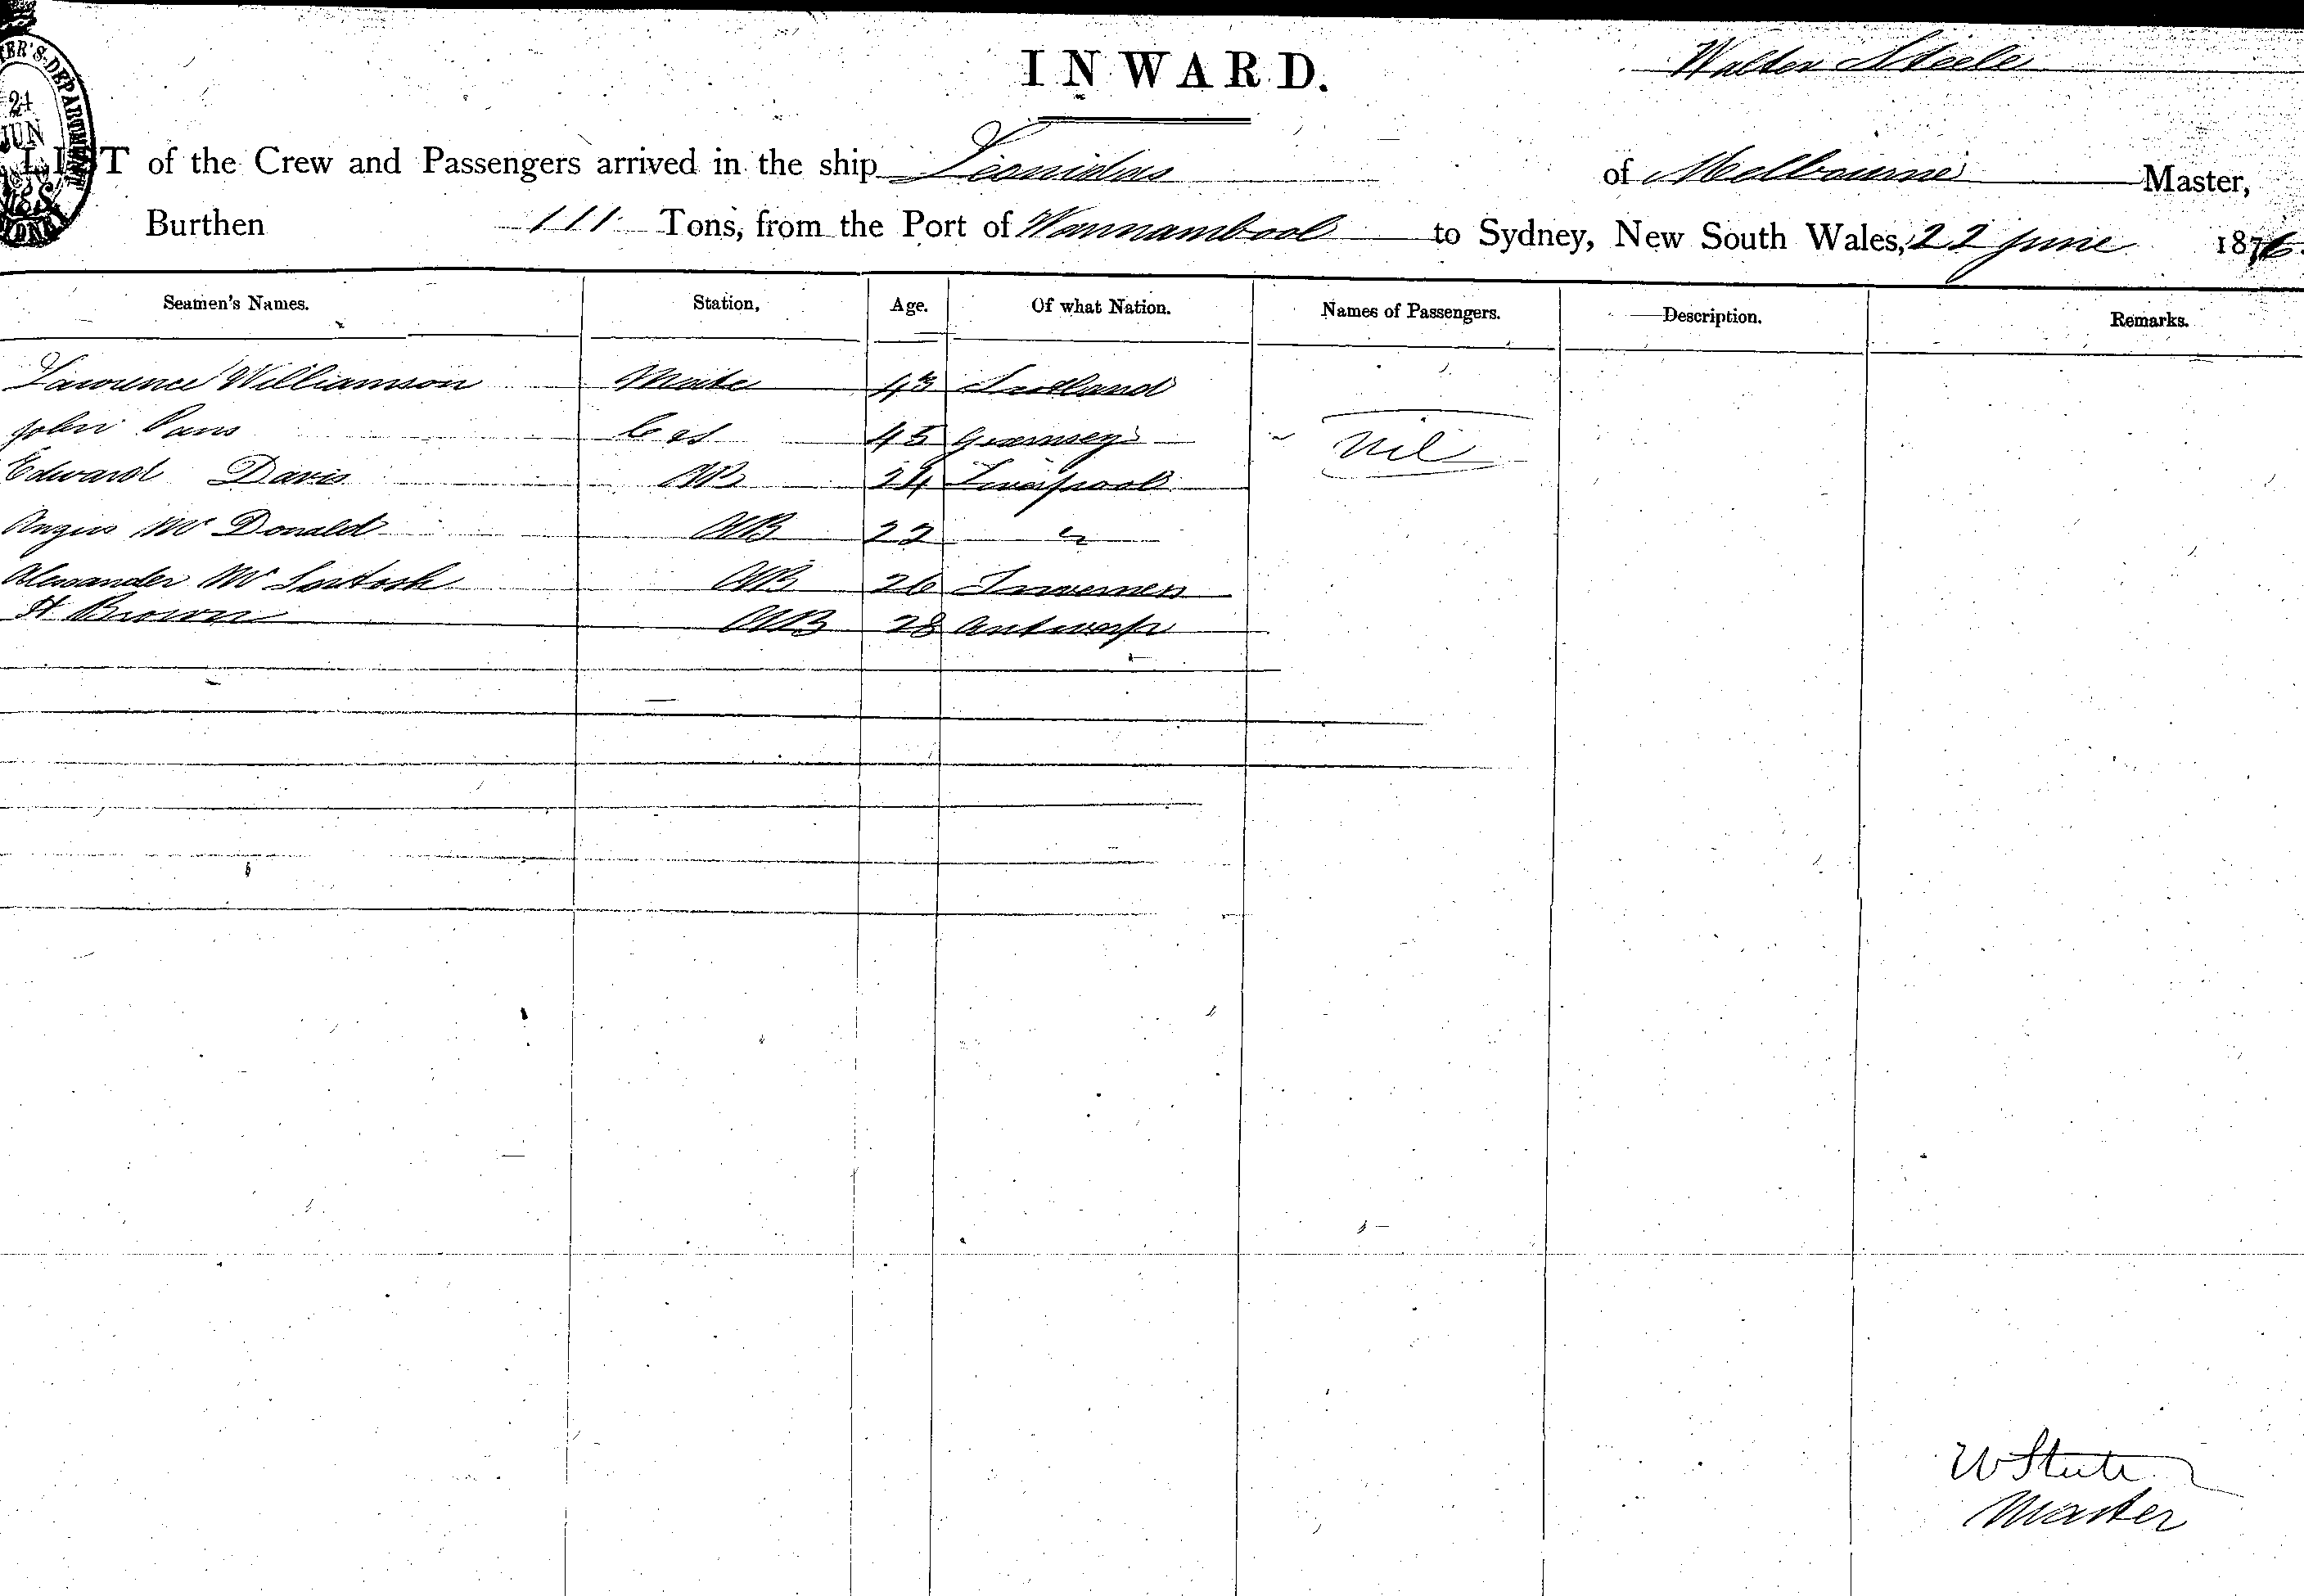 INWARD.
Walter Steele
24
JUN
LIST of the Crew and Passengers arrived in the ship Leonidas of Melbourne Master,
Burthen 111 Tons, from the Port of Warrnambool to Sydney, New South Wales, 22 June 1876.
Seamen's Names. Station, Age. Of what Nation. Names of Passengers. Description. Remarks.
Lawrence Williamson Mate 43 Scotland
John 45 Guernsey Nil
Edward Davis AB 24 Liverpool
Angus Mc Donald AB 22 "
Alexander Mc Intosh AB 26 Inverness
H Brown AB 28 Antwerp
W Steele
Master